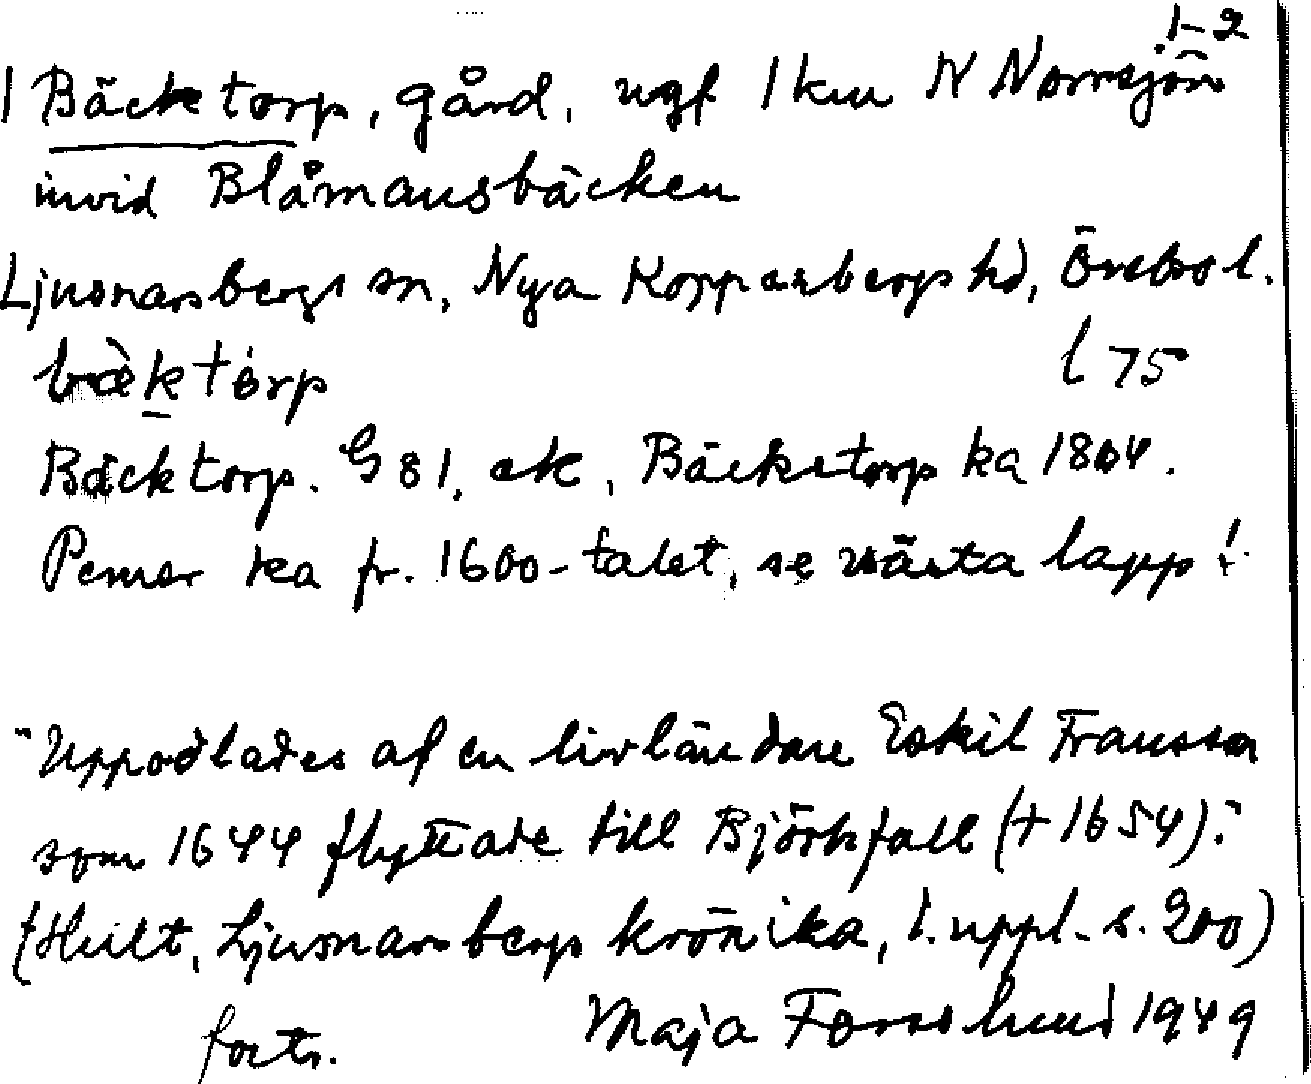 1-2
1 Bäcktorp, gård, ungf 1 km N Norrsjön
invid Blåmansbäcken
Ljusnarsbergs sn, Nya Kopparbergs hd, Örebro l.
bæ̀którp l 75
Bäcktorp. G 81, ek, Bäckstorp ka 1804.
Penner ka fr. 1600-talet, se nästa lapp!
"Uppodlades af en livländare Eskil Fransson
som 1644 flyttade till Björkfall (+ 1654)."
(Hult, Ljusnarsbergs krönika, 1. uppl. s. 200)
forts. Maja Forsslund 1949